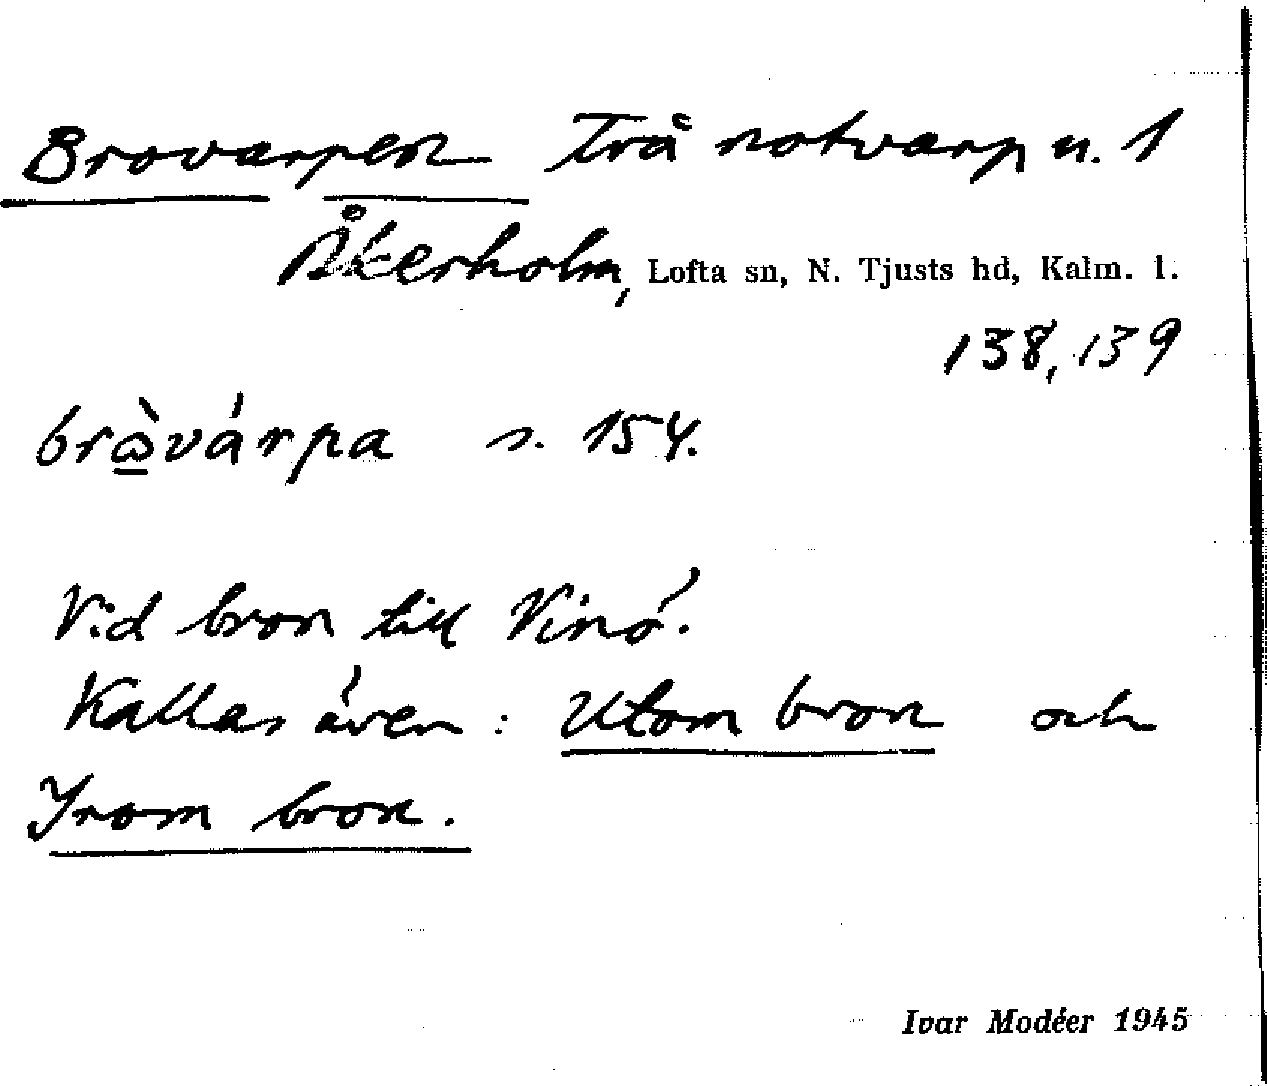 Brovarpen Två notvarp u. 1
Åkerholm, Lofta sn, N. Tjusts hd, Kalm. l.
138, 139
bròvárpa s. 154.
Vid bron till Vinö.
Kallas även: Utom bron och
Inom bron.
Ivar Modéer 1945